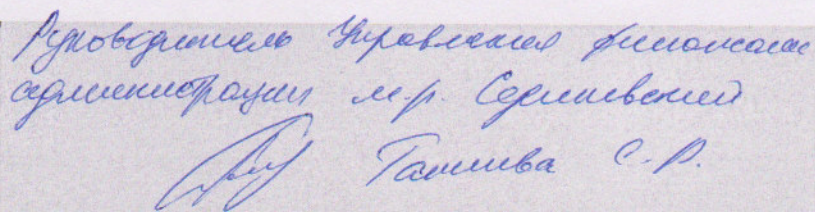 Руководитель Управления финансами
администрации м.р. Сергиевский
С.Р.